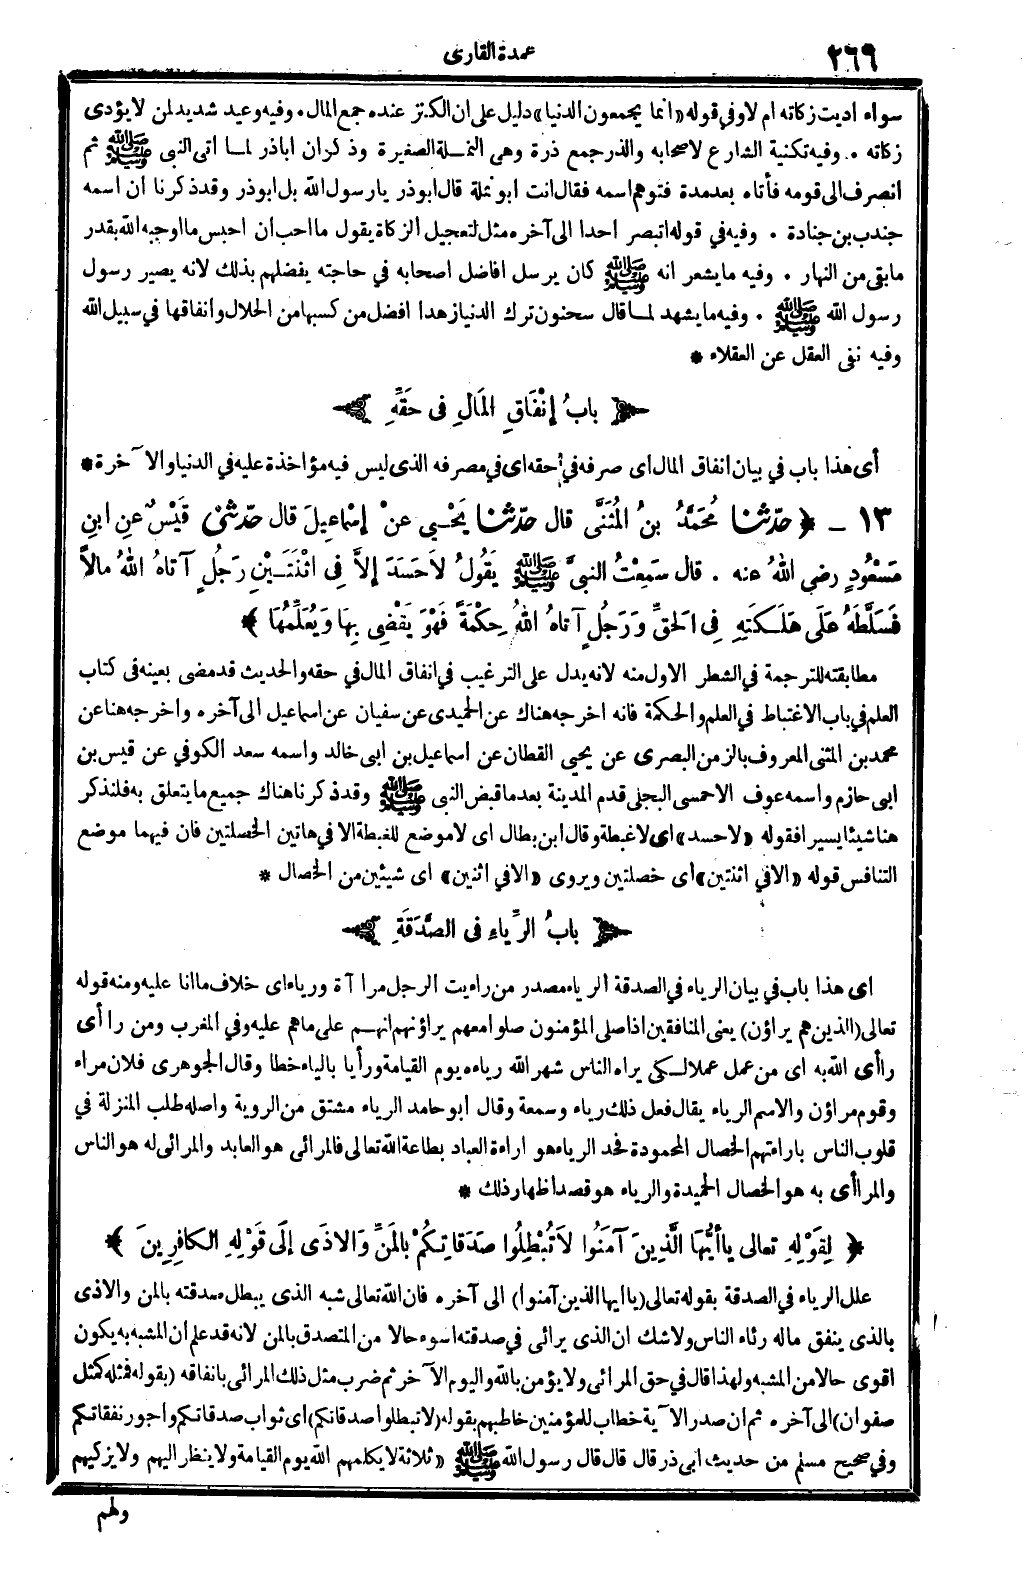 ٢٦٩
عمدة القارى
سواء اديت زكاته ام لا وفي قوله «انما يجمعون الدنيا» دليل على ان الكنز عنده جمع المال . وفيه وعيد شديد لمن لا يؤدى
زكاته . وفيه تكنية الشارع لاصحابه والذر جمع ذرة وهى النملة الصغيرة وذكر ان اباذر لما اتى النبى ﷺ ثم
انصرف الى قومه فأتاه بعد مدة فتوهم اسمه فقال انت ابو نملة قال ابوذر يارسول الله بل ابوذر وقد ذكرنا ان اسمه
جندب بن جنادة . وفيه في قوله اتبصر احدا الى آخره مثل لتعجيل الزكاة يقول ما احب ان احبس ما اوجبه الله بقدر
مابقى من النهار . وفيه مايشعر انه ﷺ كان يرسل افاضل اصحابه في حاجته يفضلهم بذلك لانه يصير رسول
رسول الله ﷺ . وفيه مايشهد لما قال سحنون ترك الدنيا زهدا افضل من كسبها من الحلال وانفاقها في سبيل الله
وفيه نفى العقل عن العقلاء *
بابُ إنْفَاقِ المَالِ فِى حَقِّهِ
أى هذا باب في بيان انفاق المال اى صرفه في حقه اى في مصرفه الذى ليس فيه مؤاخذة عليه في الدنيا والآخرة *
١٣ ـ ﴿ حدّثنا مُحَمَّدُ بنُ المُثَنَّى قال حدّثنا يَحْيى عنْ إسْمَاعِيلَ قال حدّثنى قَيْسٌ عنِ ابنِ
مَسْعُودٍ رضى اللهُ عنه . قال سَمِعْتُ النبىَّ ﷺ يَقُولُ لاَ حَسَدَ إلاَّ فِى اثْنَتَـيْنِ رَجُلٍ آتاهُ اللهُ مالاً
فَسَلَّطَهُ عَلَى هَلَـكَتِهِ فِى الحَقِّ وَرَجُلٍ آتاهُ اللهُ حِكْمَةً فَهْوَ يَقْضِى بِهَا وَيُعَلِّمُهَا ﴾
مطابقته للترجمة في الشطر الاول منه لانه يدل على الترغيب في انفاق المال في حقه والحديث قد مضى بعينه فى كتاب
العلم في باب الاغتباط في العلم والحكمة فانه اخرجه هناك عن الحميدى عن سفيان عن اسماعيل الى آخره . واخرجه هنا عن
محمد بن المثنى المعروف بالزمن البصرى عن يحيى القطان عن اسماعيل بن ابى خالد واسمه سعد الكوفي عن قيس بن
ابى حازم واسمه عوف الاحمسى البجلى قدم المدينة بعد ما قبض النبى ﷺ وقد ذكرنا هناك جميع ما يتعلق به فلنذكر
هنا شيئا يسيرا فقوله «لاحسد» اى لاغبطة وقال ابن بطال اى لاموضع للغبطة الا في هاتين الخصلتين فان فيهما موضع
التنافس قوله «الا في اثنتين» اى خصلتين ويروى «الا في اثنين» اى شيئين من الخصال *
بابُ الرِّياءِ فِى الصَّدَقَةِ
اى هذا باب في بيان الرياء في الصدقة الرياء مصدر من راءيت الرجل مراآة ورياء اى خلاف ما انا عليه ومنه قوله
تعالى (الذين هم يراؤن) يعنى المنافقين اذا صلى المؤمنون صلوا معهم يراؤنهم انهـم على ماهم عليه وفي المغرب ومن راأى
راأى الله به اى من عمل عملا لـكى يراه الناس شهر الله رياءه يوم القيامة ورأيا بالياء خطا وقال الجوهرى فلان مراء
وقوم مراؤن والاسم الرياء يقال فعل ذلك رياء وسمعة وقال ابو حامد الرياء مشتق من الروية واصله طلب المنزلة في
قلوب الناس باراءتهم الخصال المحمودة فحد الرياء هو اراءة العباد بطاعة الله تعالى فالمرائى هو العابد والمرائى له هو الناس
والمراأى به هو الخصال الحميدة والرياء هو قصد اظهار ذلك *
﴿ لِقَوْلِهِ تعالى يا أيُّهَا الَّذِينَ آمَنُوا لاَ تُبْطِلُوا صَدَقاتِكُمْ بالمَنِّ وَالاذَى إلَى قَوْلِهِ الكافِرِينَ ﴾
علل الرياء في الصدقة بقوله تعالى (يا ايها الذين آمنوا) الى آخره فان الله تعالى شبه الذى يبطل صدقته بالمن والاذى
بالذى ينفق ماله رئاء الناس ولاشك ان الذى يرائى في صدقته اسوء حالا من المتصدق بالمن لانه قد علم ان المشبه به يكون
اقوى حالا من المشبه ولهذا قال في حق المرائى ولا يؤمن بالله واليوم الآخر ثم ضرب مثل ذلك المرائى بانفاقه (بقوله فمثله كمثل
صفوان) الى آخره ثم ان صدر الآية خطاب للمؤمنين خاطبهم بقوله (لاتبطلوا صدقاتكم) اى ثواب صدقاتكم واجور نفقاتكم
وفي صحيح مسلم من حديث ابى ذر قال قال قال رسول الله ﷺ «ثلاثة لا يكلمهم الله يوم القيامة ولا ينظر اليهم ولا يزكيهم
ولهم